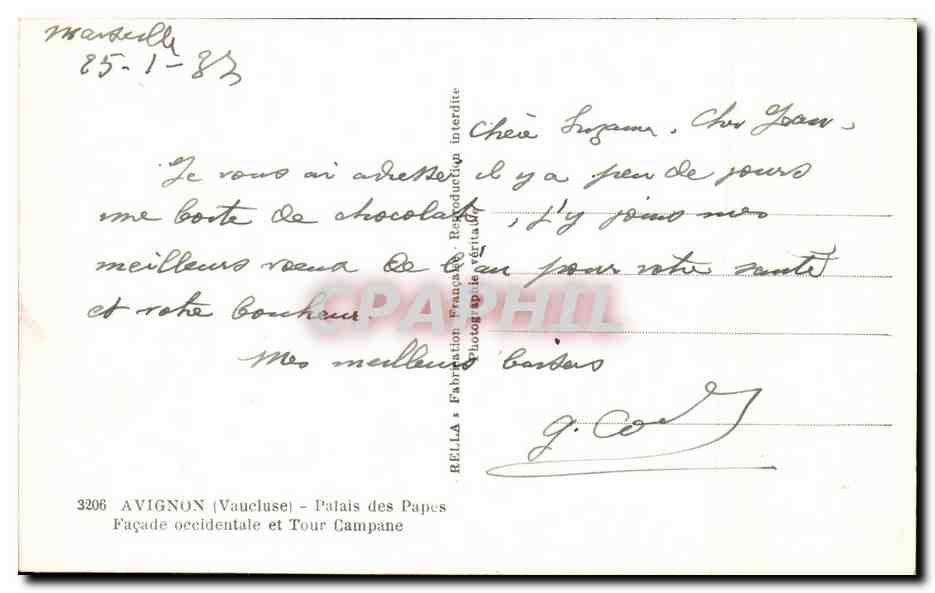 Marseille
25-1-
Chère Suzanne, Cher Jean,
Je vous ai adressé il y a peu de jours
une boite de chocolats, j'y joins mes
meilleurs voeux de l'an pour votre santé
et votre bonheur.
Mes meilleurs baisers
g.
RELLA & Fabrication Française - Reproduction interdite
Photographie véritable
CPAPHIL
3206 AVIGNON (Vaucluse) - Palais des Papes
Façade occidentale et Tour Campane